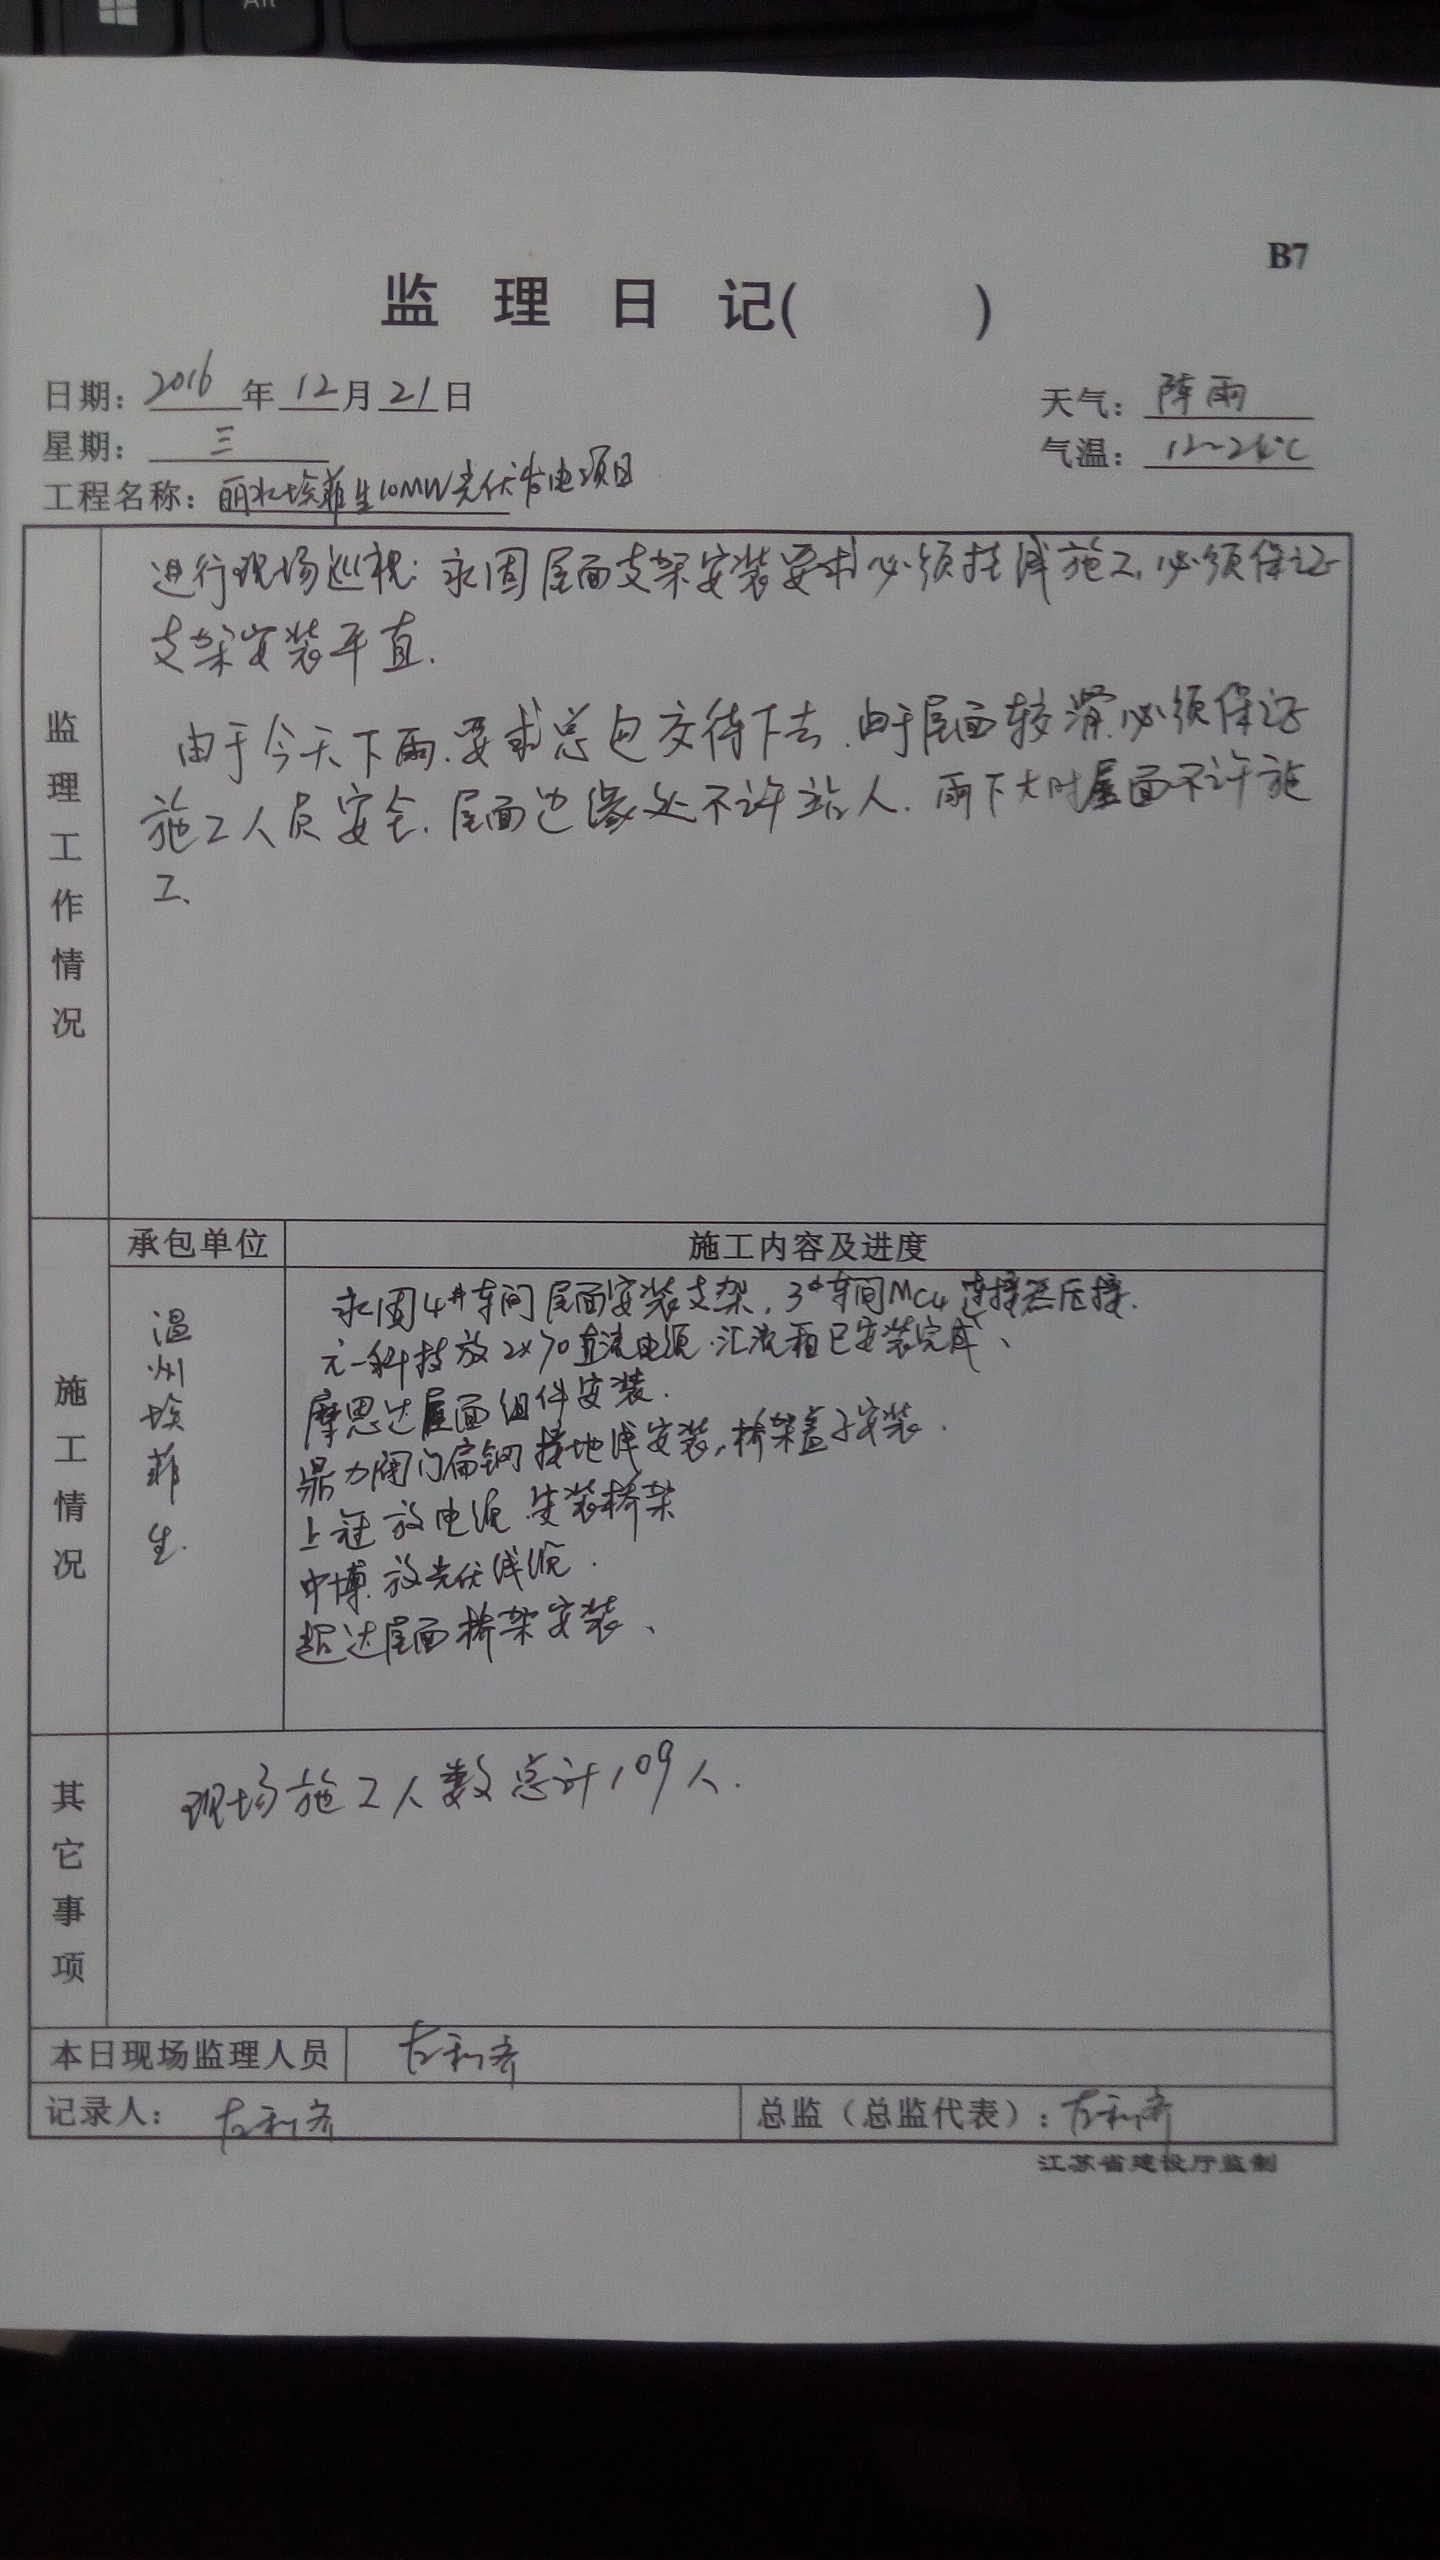 Alt
B7
监理日记( )
日期: 2016 年 12 月 21 日
天气: 阵雨
星期: 三
气温: 12~2℃
工程名称: 丽水埃菲生10MW光伏发电项目
监理工作情况
进行现场巡视: 永固屋面支架安装要求必须挂线施工,必须保证
支架安装平直.
由于今天下雨,要求总包交待下去,由于屋面较滑,必须保证
施工人员安全.屋面边缘处不许站人.雨下大时屋面不许施
工、
施工情况
承包单位
施工内容及进度
温州埃菲生.
永固4#车间屋面安装支架,3#车间MC4连接器压接.
元一科技放2×70直流电缆.汇流箱已安装完成、
摩思达屋面组件安装.
鼎力阀门扁钢接地线安装,桥架盖子安装.
上冠放电缆.安装桥架
中博.放光伏线缆.
超达屋面桥架安装、
其它事项
现场施工人数总计109人.
本日现场监理人员 左利齐
记录人: 左利齐
总监(总监代表): 左利齐
江苏省建设厅监制